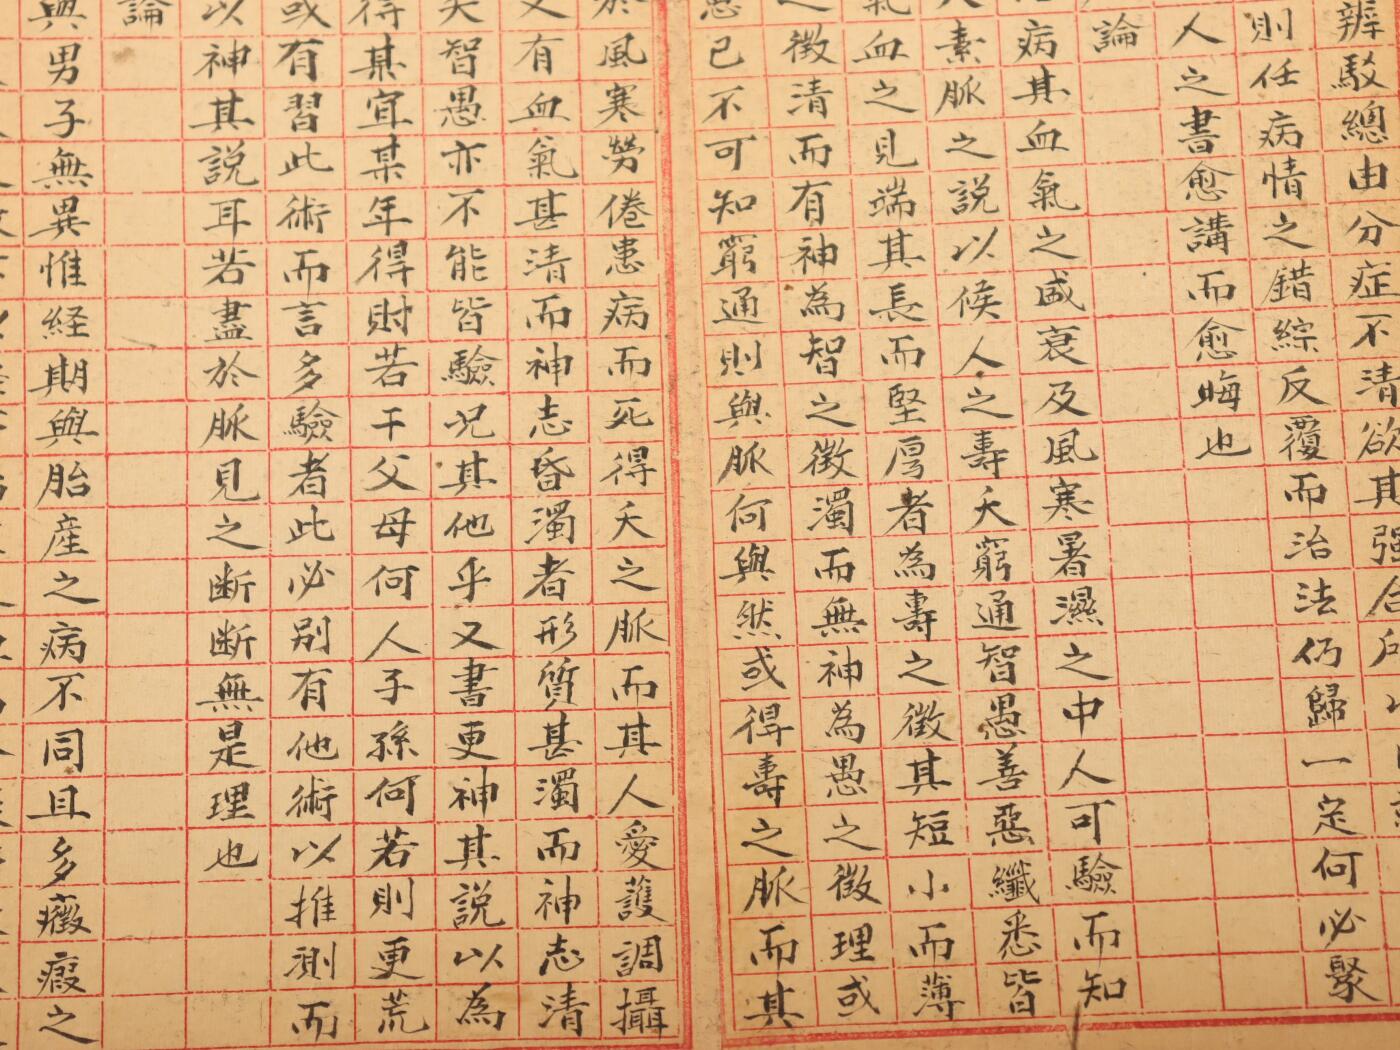 辨駁總由分症不清欲其強合
則任病情之錯綜反覆而治法仍歸一定何必聚
人之書愈講而愈晦也
論
病其血氣之盛衰及風寒暑濕之中人可驗而知
素脈之說以候人之壽夭窮通智愚善惡纖悉皆
血之見端其長而堅厚者為壽之徵其短小而薄
之徵清而有神為智之徵濁而無神為愚之徵理或
已不可知窮通則與脈何與然或得壽之脈而其
風寒勞倦患病而死得夭之脈而其人愛護調攝
又有血氣甚清而神志昏濁者形質甚濁而神志清
智愚亦不能皆驗况其他乎又書更神其說以為
得某宜某年得財若干父母何人子孫何若則更荒
或有習此術而言多驗者此必別有他術以推測而
以神其說耳若盡於脈見之断断無是理也
論
與男子無異惟経期與胎產之病不同且多癥瘕之